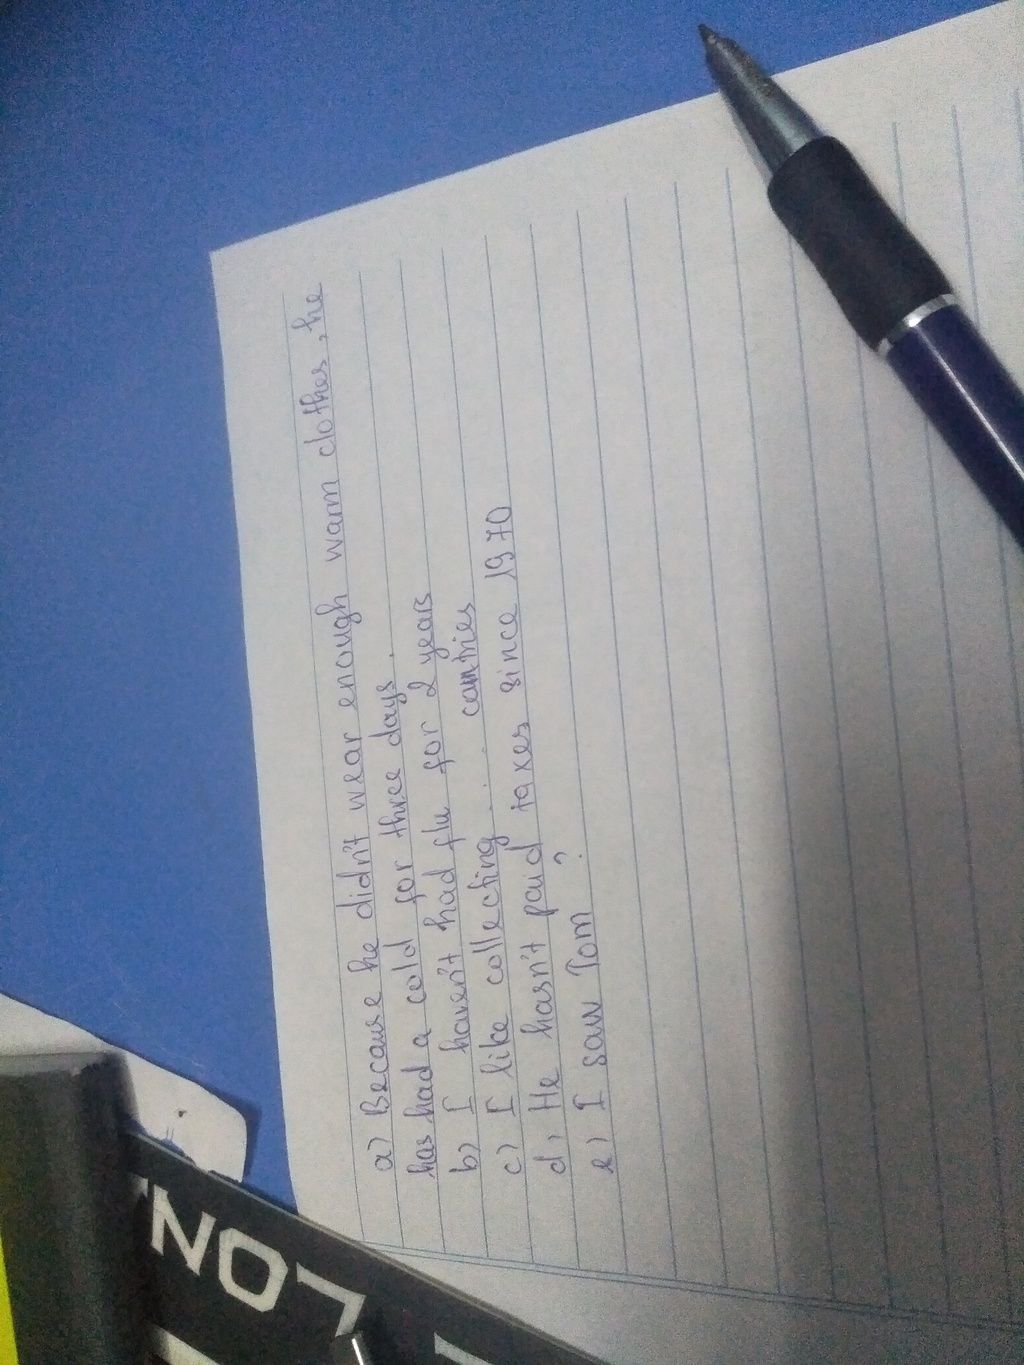 a) Because he didn't wear enough warm clothes, he
has had a cold for three days.
b) I haven't had flu for 2 years
c) I like collecting . . . countries
d, He hasn't paid taxes since 1970
e) I saw Tom ?
NOL